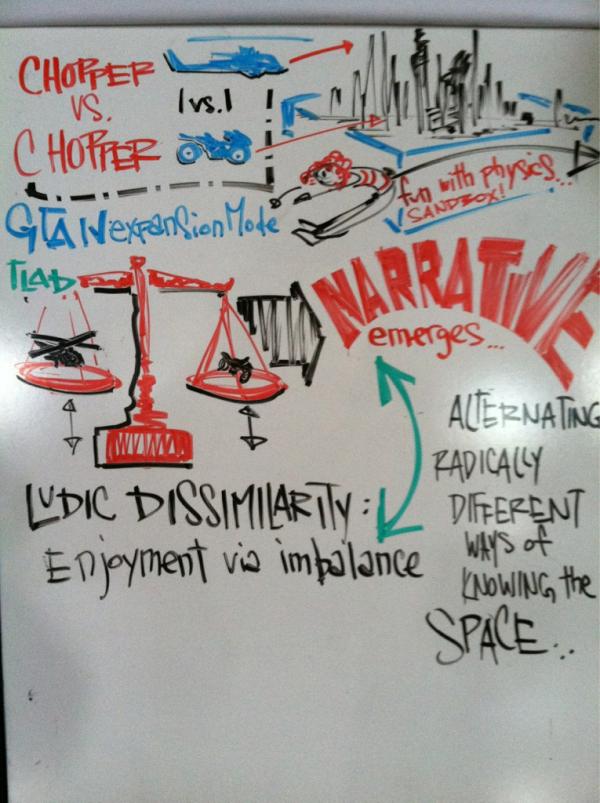 CHOPPER
VS.
CHOPPER
1 vs. 1
fun with physics...
SANDBOX!
GTA IV expansion Mode
TLAD
NARRATIVE
emerges...
ALTERNATING
RADICALLY
DIFFERENT
WAYS of
KNOWING the
SPACE...
LUDIC DISSIMILARITY:
Enjoyment via imbalance